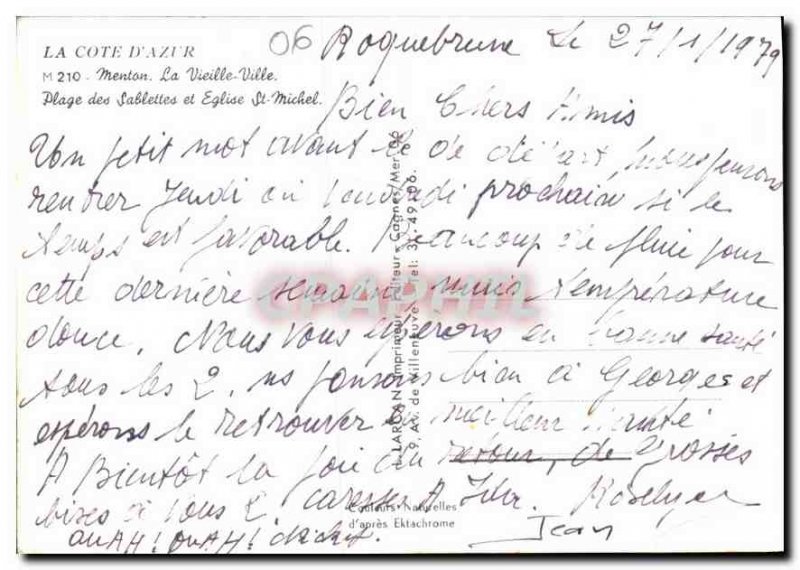 LA COTE D'AZUR
M 210 - Menton. La Vieille-Ville.
Plage des Sablettes et Eglise St-Michel.
06 Roquebrune le 27/1/1979
Bien Chers Amis
Un petit mot avant le départ, nous pensons
rentrer Jeudi ou Vendredi prochain si le
temps est favorable. Beaucoup de pluie pour
cette dernière semaine, mais température
douce, Nous vous espérons en bonne santé
tous les 2, ns pensons bien à Georges et
espérons le retrouver en meilleur santé
A Bientôt la joie du retour, de Grosses
bises à vous 2 caresses A Roselyne
ouAH! ouAH! Jean
LARDAN Imprimeur - Editeur - Cagnes/Mer 06
9, Av. de Villeneuve Tel: 31.49.06.
Couleurs Naturelles
d'après Ektachrome
CPAPHIL